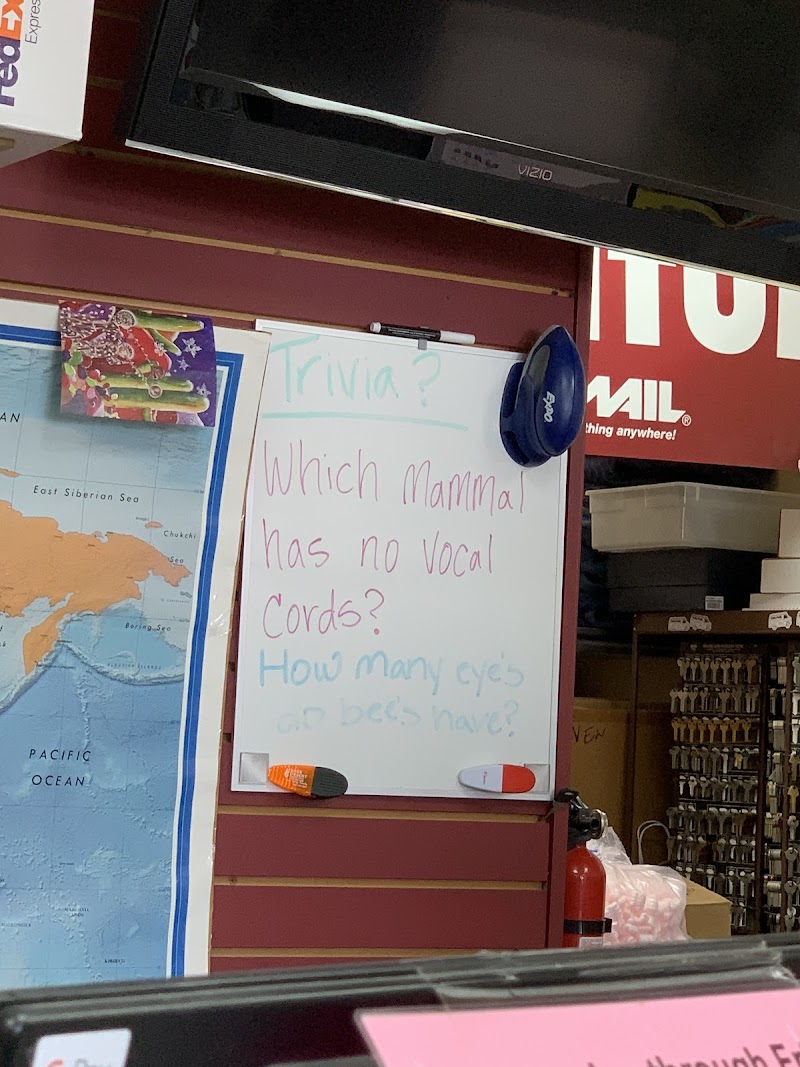 FedEx
Express
VIZIO
Trivia?
Which Mammal
has no vocal
Cords?
How many eye's
do bee's have?
EXPO
MAIL®
thing anywhere!
East Siberian Sea
Chukchi
Sea
Bering Sea
PACIFIC
OCEAN
through